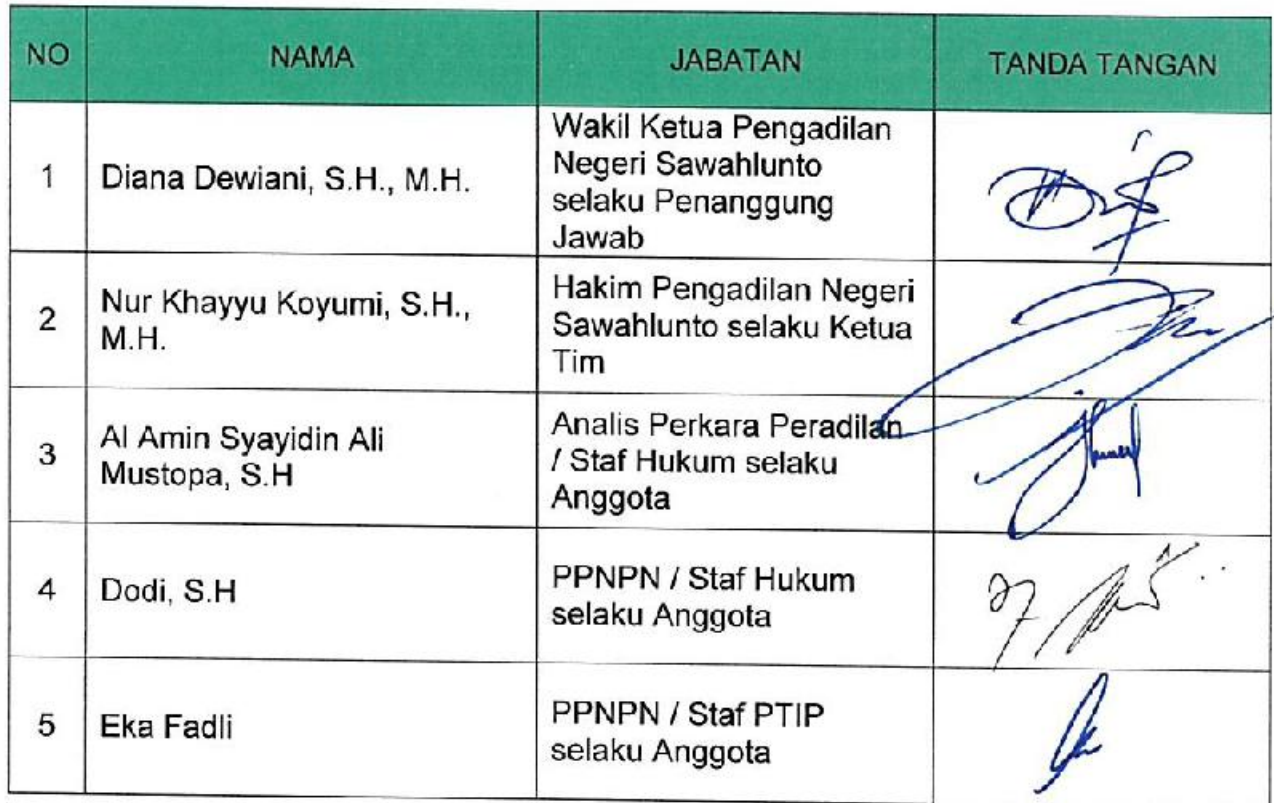 NO NAMA JABATAN TANDA TANGAN
1 Diana Dewiani, S.H., M.H. Wakil Ketua Pengadilan
Negeri Sawahlunto
selaku Penanggung
Jawab
2 Nur Khayyu Koyumi, S.H.,
M.H.
Hakim Pengadilan Negeri
Sawahlunto selaku Ketua
Tim
3 Al Amin Syayidin Ali
Mustopa, S.H
Analis Perkara Peradilan
/ Staf Hukum selaku
Anggota
4 Dodi, S.H
PPNPN / Staf Hukum
selaku Anggota
5 Eka Fadli
PPNPN / Staf PTIP
selaku Anggota